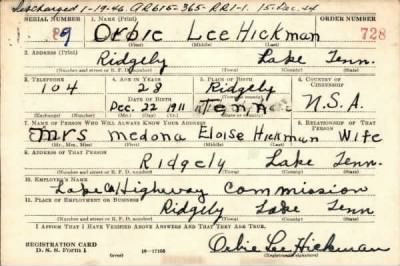 Discharged 1-19-46 AR615-365-RR1-1. 15-Dec.44
SERIAL NUMBER 1. Name (Print) ORDER NUMBER
89 Orbie Lee Hickman 728
(First) (Middle) (Last)
2. Address (Print)
Ridgely Lake Tenn.
(Number and street or R. F. D. number) (Town) (County) (State)
3. Telephone 4. Age in Years 5. Place of Birth 6. Country of Citizenship
104 28 Ridgely
Date of Birth (Town or county)
Dec. 22 1911 Tenn. U.S.A.
(Exchange) (Number) (Mo.) (Day) (Yr.) (State or country)
7. Name of Person Who Will Always Know Your Address 8. Relationship of That Person
Mrs Medona Eloise Hickman Wife
(Mr., Mrs., Miss) (First) (Middle) (Last)
9. Address of That Person
Ridgely Lake Tenn.
(Number and street or R. F. D. number) (Town) (County) (State)
10. Employer's Name
Lake Co Highway Commission
11. Place of Employment or Business
Ridgely Lake Tenn
(Number and street or R. F. D. number) (Town) (County) (State)
I Affirm That I Have Verified Above Answers and That They Are True.
REGISTRATION CARD
D. S. S. Form 1 16—17105 Orbie Lee Hickman
(Registrant's signature)